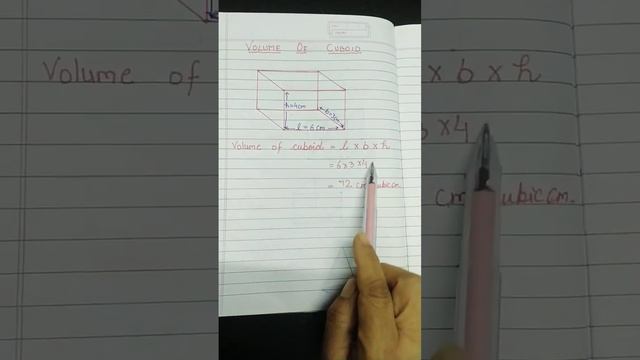 VOLUME OF CUBOID
h=4cm
b=3cm
l = 6 cm
Volume of cuboid = l × b × h
= 6 × 3 × 4
= 72 cm
cubic cm.
Volume of
× b × h
× 4
cm
ubic cm.